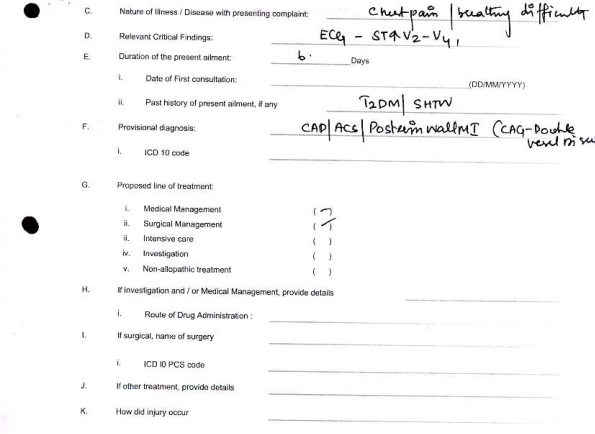 C. Nature of Illness / Disease with presenting complaint: Chest pain / breathing difficulty
D. Relevant Critical Findings: ECG - ST↑ V2-V4,
E. Duration of the present ailment: 6. Days
i. Date of First consultation: (DD/MM/YYYY)
ii. Past history of present ailment, if any T2DM / SHTN
F. Provisional diagnosis: CAD / ACS / Posterior wall MI (CAG-Double
vessel
i. ICD 10 code
G. Proposed line of treatment:
i. Medical Management ( )
ii. Surgical Management ( ✓ )
ii. Intensive care ( )
iv. Investigation ( )
v. Non-allopathic treatment ( )
H. If investigation and / or Medical Management, provide details
i. Route of Drug Administration :
I. If surgical, name of surgery
i. ICD I0 PCS code
J. If other treatment, provide details
K. How did injury occur